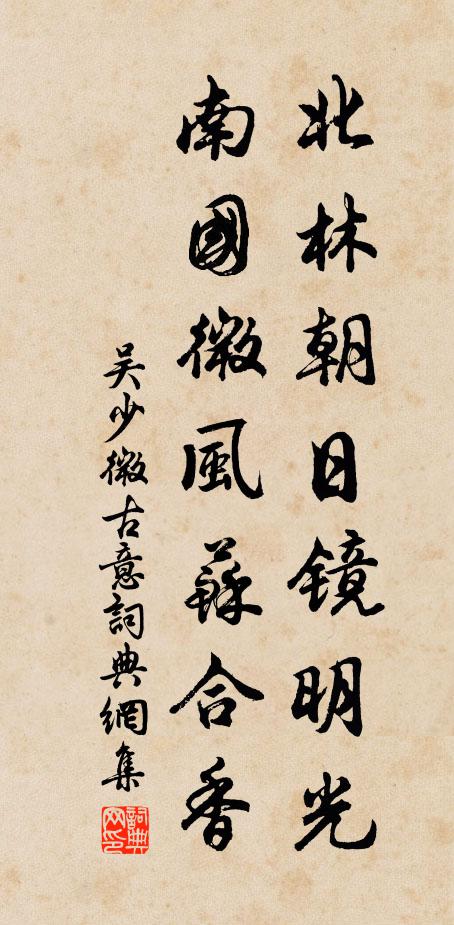 北林朝日镜明光
南國微風蘇合香
吴少微古意詞典網集
詞典网印